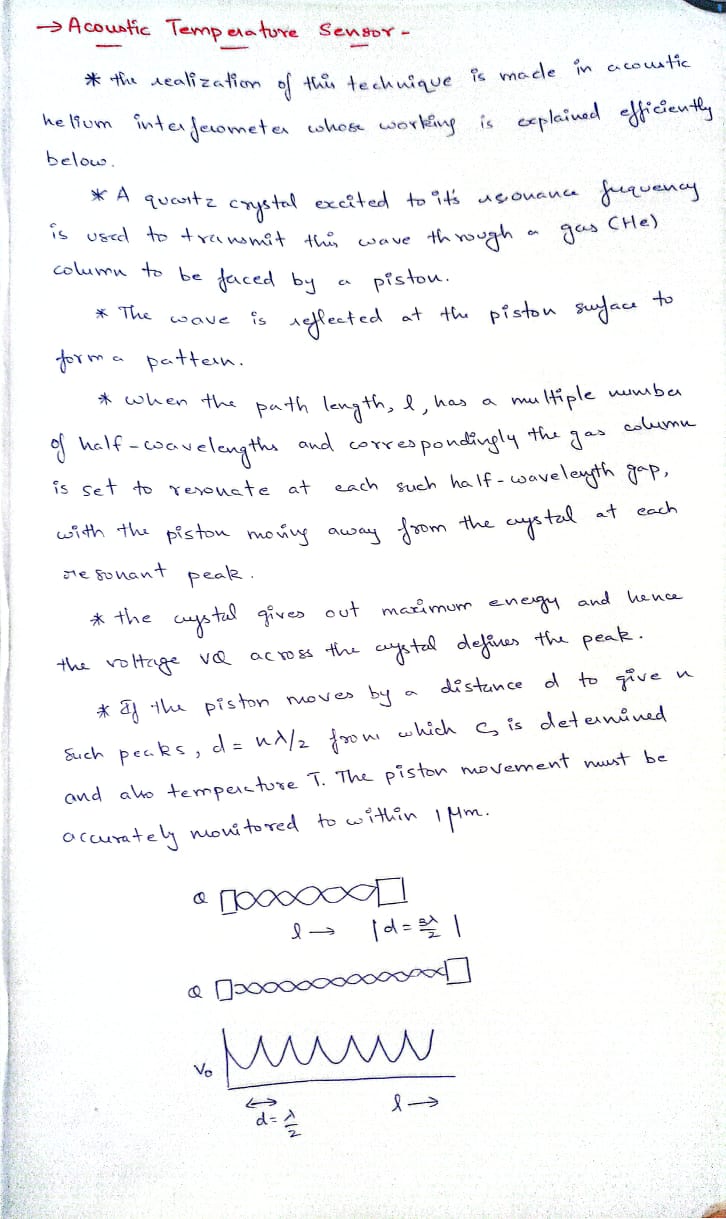 → Acoustic Temperature Sensor -
* the realization of this technique is made in acoustic
helium interferometer whose working is explained efficiently
below.
* A quartz crystal excited to it's resonance frequency
is used to transmit this wave through a gas (He)
column to be faced by a piston.
* The wave is reflected at the piston surface to
form a pattern.
* when the path length, l, has a multiple number
of half-wavelengths and correspondingly the gas column
is set to resonate at each such half-wavelength gap,
with the piston moving away from the crystal at each
resonant peak.
* the crystal gives out maximum energy and hence
the voltage VQ across the crystal defines the peak.
* If the piston moves by a distance d to give n
Such peaks, d = nλ/2 from which Cs is determined
and also temperature T. The piston movement must be
accurately monitored to within 1 μm.
Q
l → |d = λ/2 |
Q
Vo
d = λ/2 l →